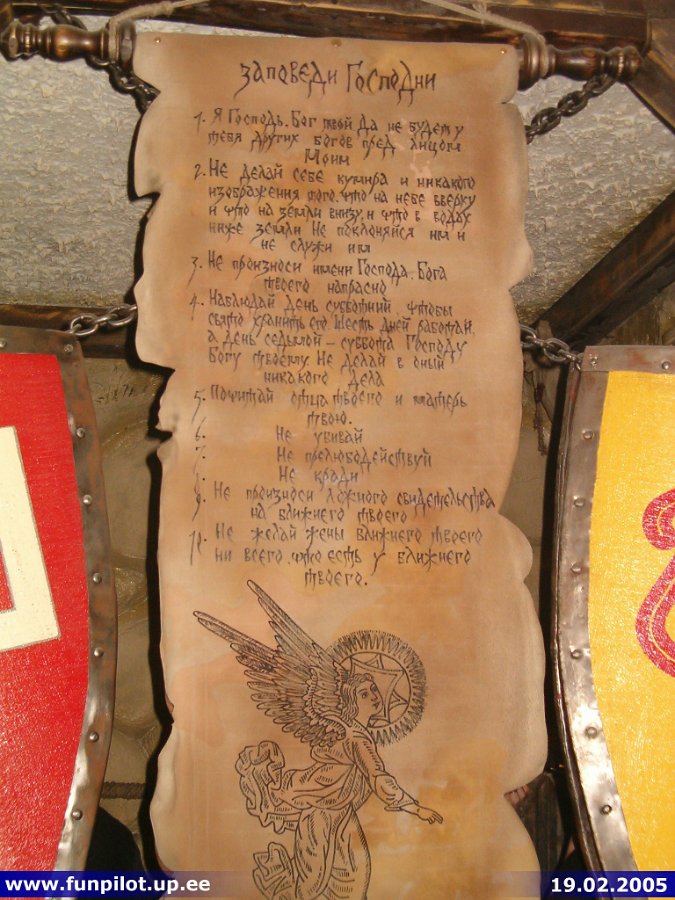 ЗАПОВЕДИ ГОСПОДНИ
1. Я Господь, Бог твой Да не будет у
тебя других богов пред лицом
Моим
2. Не делай себе кумира и никакого
изображения того, что на небе вверху
и что на земли внизу, и что в водах
ниже земли Не поклоняйся им и
не служи им
3. Не произноси имени Господа, Бога
твоего напрасно
4. Наблюдай день субботний чтобы
свято хранить его. Шесть дней работай,
а день седьмой – суббота Господу
Богу твоему. Не делай в оный
никакого дела
5. Почитай отца твоего и матерь
твою.
6. Не убивай
7. Не прелюбодействуй
8. Не кради
9. Не произноси ложного свидетельства
на ближнего твоего
10. Не желай жены ближнего твоего
ни всего, что есть у ближнего
твоего.
www.funpilot.up.ee
19.02.2005